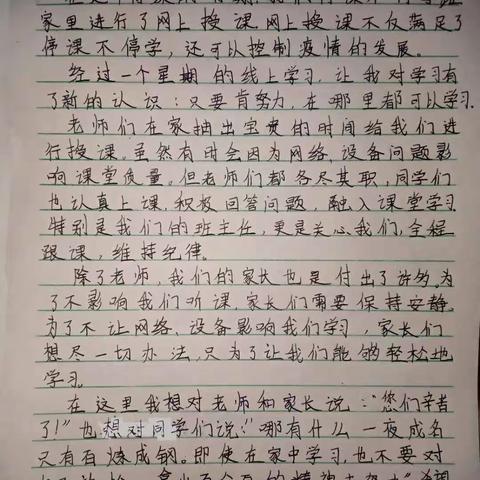 家里进行了网上授课,网上授课不仅满足了
停课不停学,还可以控制疫情的发展。
经过一个星期的线上学习,让我对学习有
了新的认识:只要肯努力,在哪里都可以学习.
老师们在家抽出宝贵的时间给我们进
行授课。虽然有时会因为网络、设备问题影
响课堂质量。但老师们都各尽其职,同学们
也认真上课,积极回答问题,融入课堂学习.
特别是我们的班主任,更是关心我们,全程
跟课,维持纪律。
除了老师,我们的家长也是付出了许多,为
了不影响我们听课,家长们需要保持安静.
为了不让网络、设备影响我们学习,家长们
想尽一切办法,只为了让我们能够轻松地
学习。
在这里我想对老师和家长说:“您们辛苦
了!”也想对同学们说:“哪有什么一夜成名
只有百炼成钢。即使在家中学习,也不要对